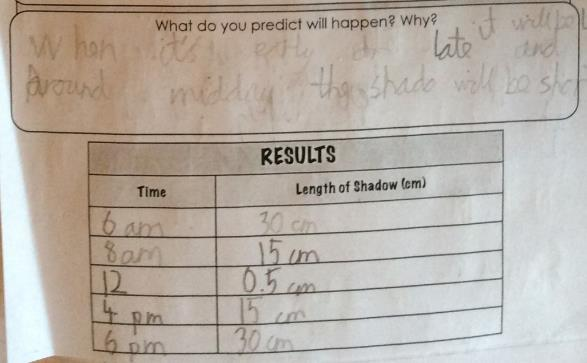 What do you predict will happen? Why?
When it's early or late it will be
and
Around midday the shado will be shor
RESULTS
Time Length of Shadow (cm)
6 am 30 cm
8am 15 cm
12 0.5 cm
4 pm 15 cm
6 pm 30 cm